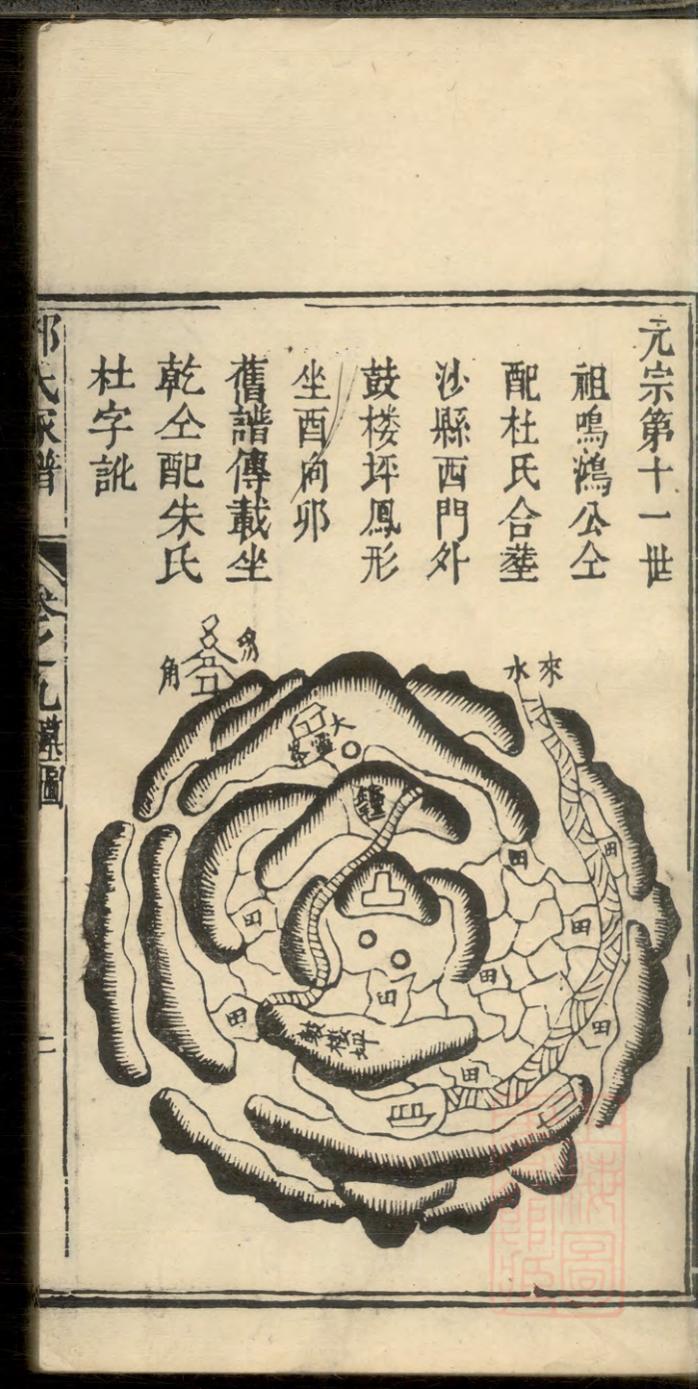 元宗第十一世
祖鳴鴻公仝
配杜氏合塟
沙縣西門外
鼓楼坪鳳形
坐酉向夘
舊譜傳載坐
乾仝配朱氏
杜字訛
氏家譜
卷之九 墓圖
二
來
水
角
大
田
田
田
田
田
田
田
田
田
鼓樓坪